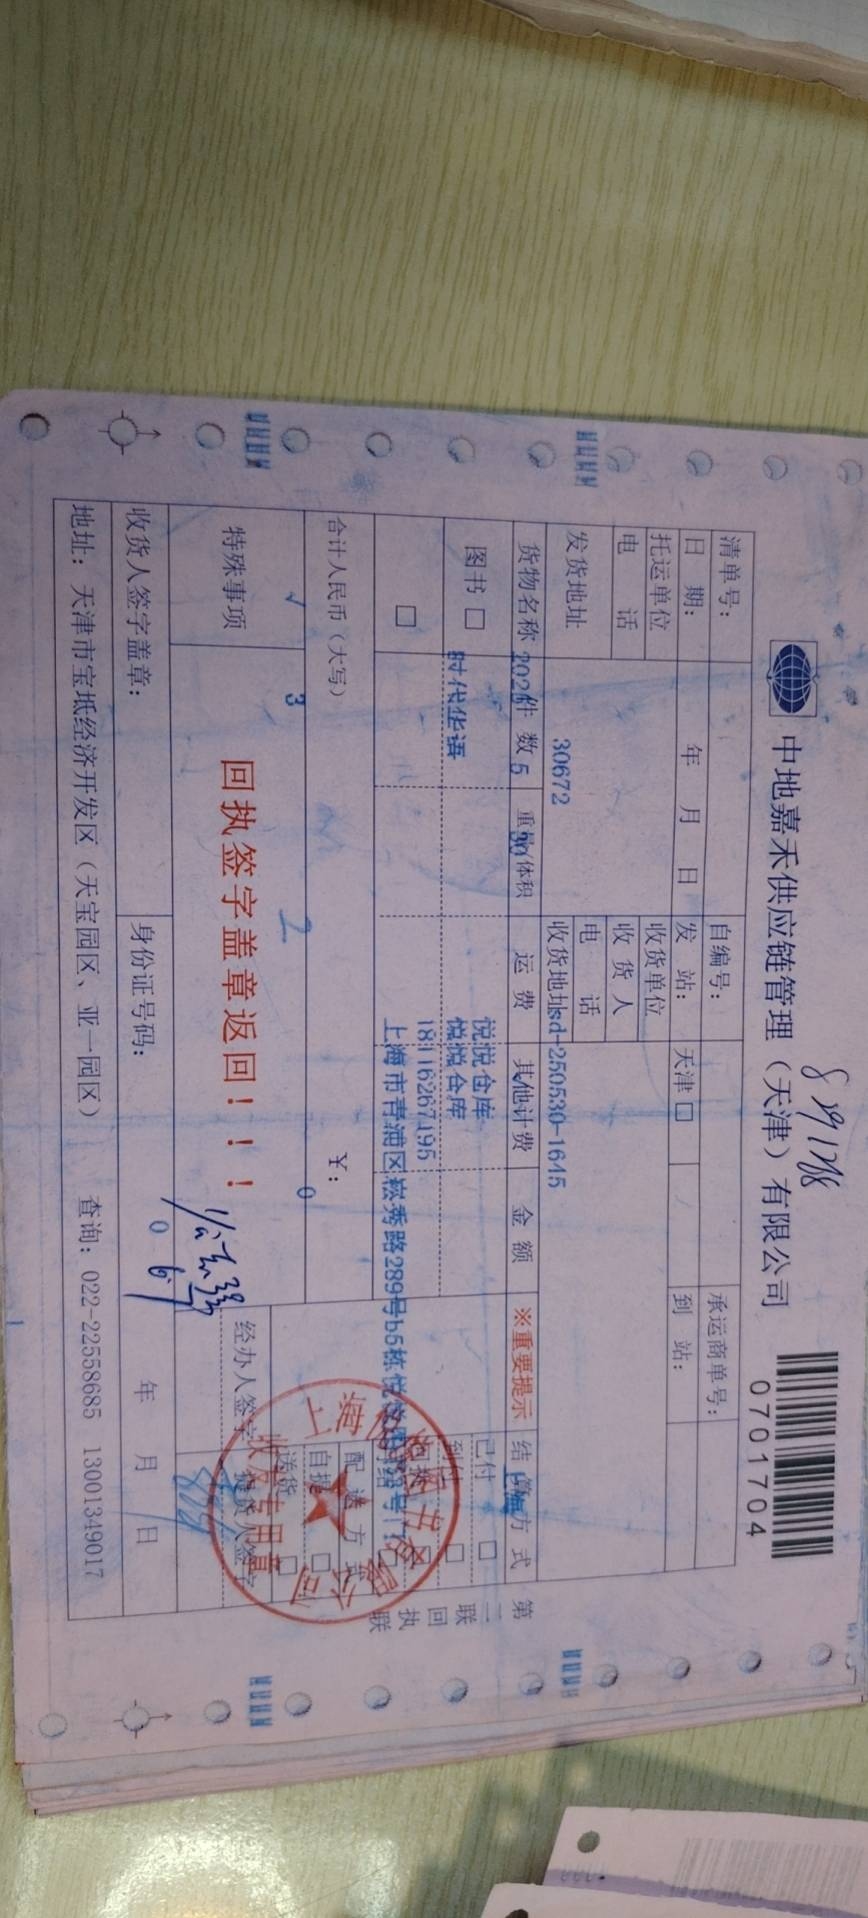 中地嘉禾供应链管理（天津）有限公司
0701704
清单号：
自编号：
承运商单号：
日 期： 年 月 日
发 站： 天津 □
到 站：
托运单位
收货单位
电 话
收 货 人
电 话
发货地址
30672
收货地址 sd-250530-1645
货物名称
件 数
5
重量/体积
运 费
其他计费
金 额
※重要提示
结 算 方 式
图书 □
时代华语
悦悦仓库
悦悦仓库
18116267495
上海市青浦区崧秀路289号b5栋
已付 □
□
配 送 方 式
自提 □
送货 □
合计人民币（大写）
¥：
0
√
3
2
特殊事项
回执签字盖章返回！！！
经办人签字
提货人签字
收货专用章
收货人签字盖章：
身份证号码：
0
年 月 日
地址：天津市宝坻经济开发区（天宝园区、亚一园区） 查询：022-22558685 13001349017
第二联 回执联